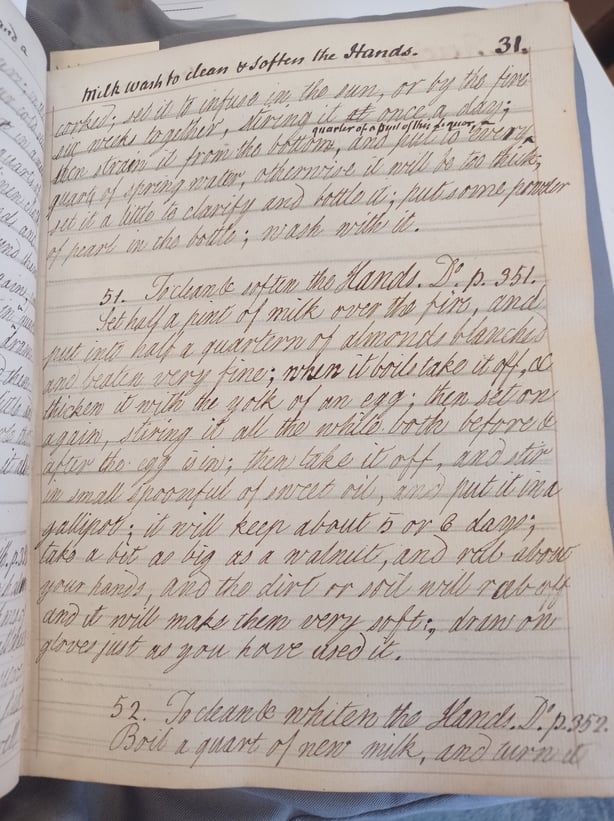 Milk Wash to clean & soften the Hands. 31.
corked; set it to infuse in the sun, or by the fire
six weeks together, stiring it at once a day;
quarter of a pint of this liquor, a
then strain it from the bottom, and put to every
quart of spring water, otherwise it will be too thick,
set it a little to clarify and bottle it; put some powder
of pearl in the bottle; wash with it.
51. To clean & soften the Hands. Do. p. 351.
Set half a pint of milk over the fire, and
put into half a quartern of almonds blanched
and beaten very fine; when it boils take it off, &
thicken it with the yolk of an egg; then set on
again, stiring it all the while both before &
after the egg is in; then take it off, and stir
in small spoonful of sweet oil, and put it in a
gallipot; it will keep about 5 or 6 days;
take a bit as big as a walnut, and rub about
your hands, and the dirt or soil will rub off
and it will make them very soft; draw on
gloves just as you have used it.
52. To clean & whiten the Hands. Do. p. 352.
Boil a quart of new milk, and turn it